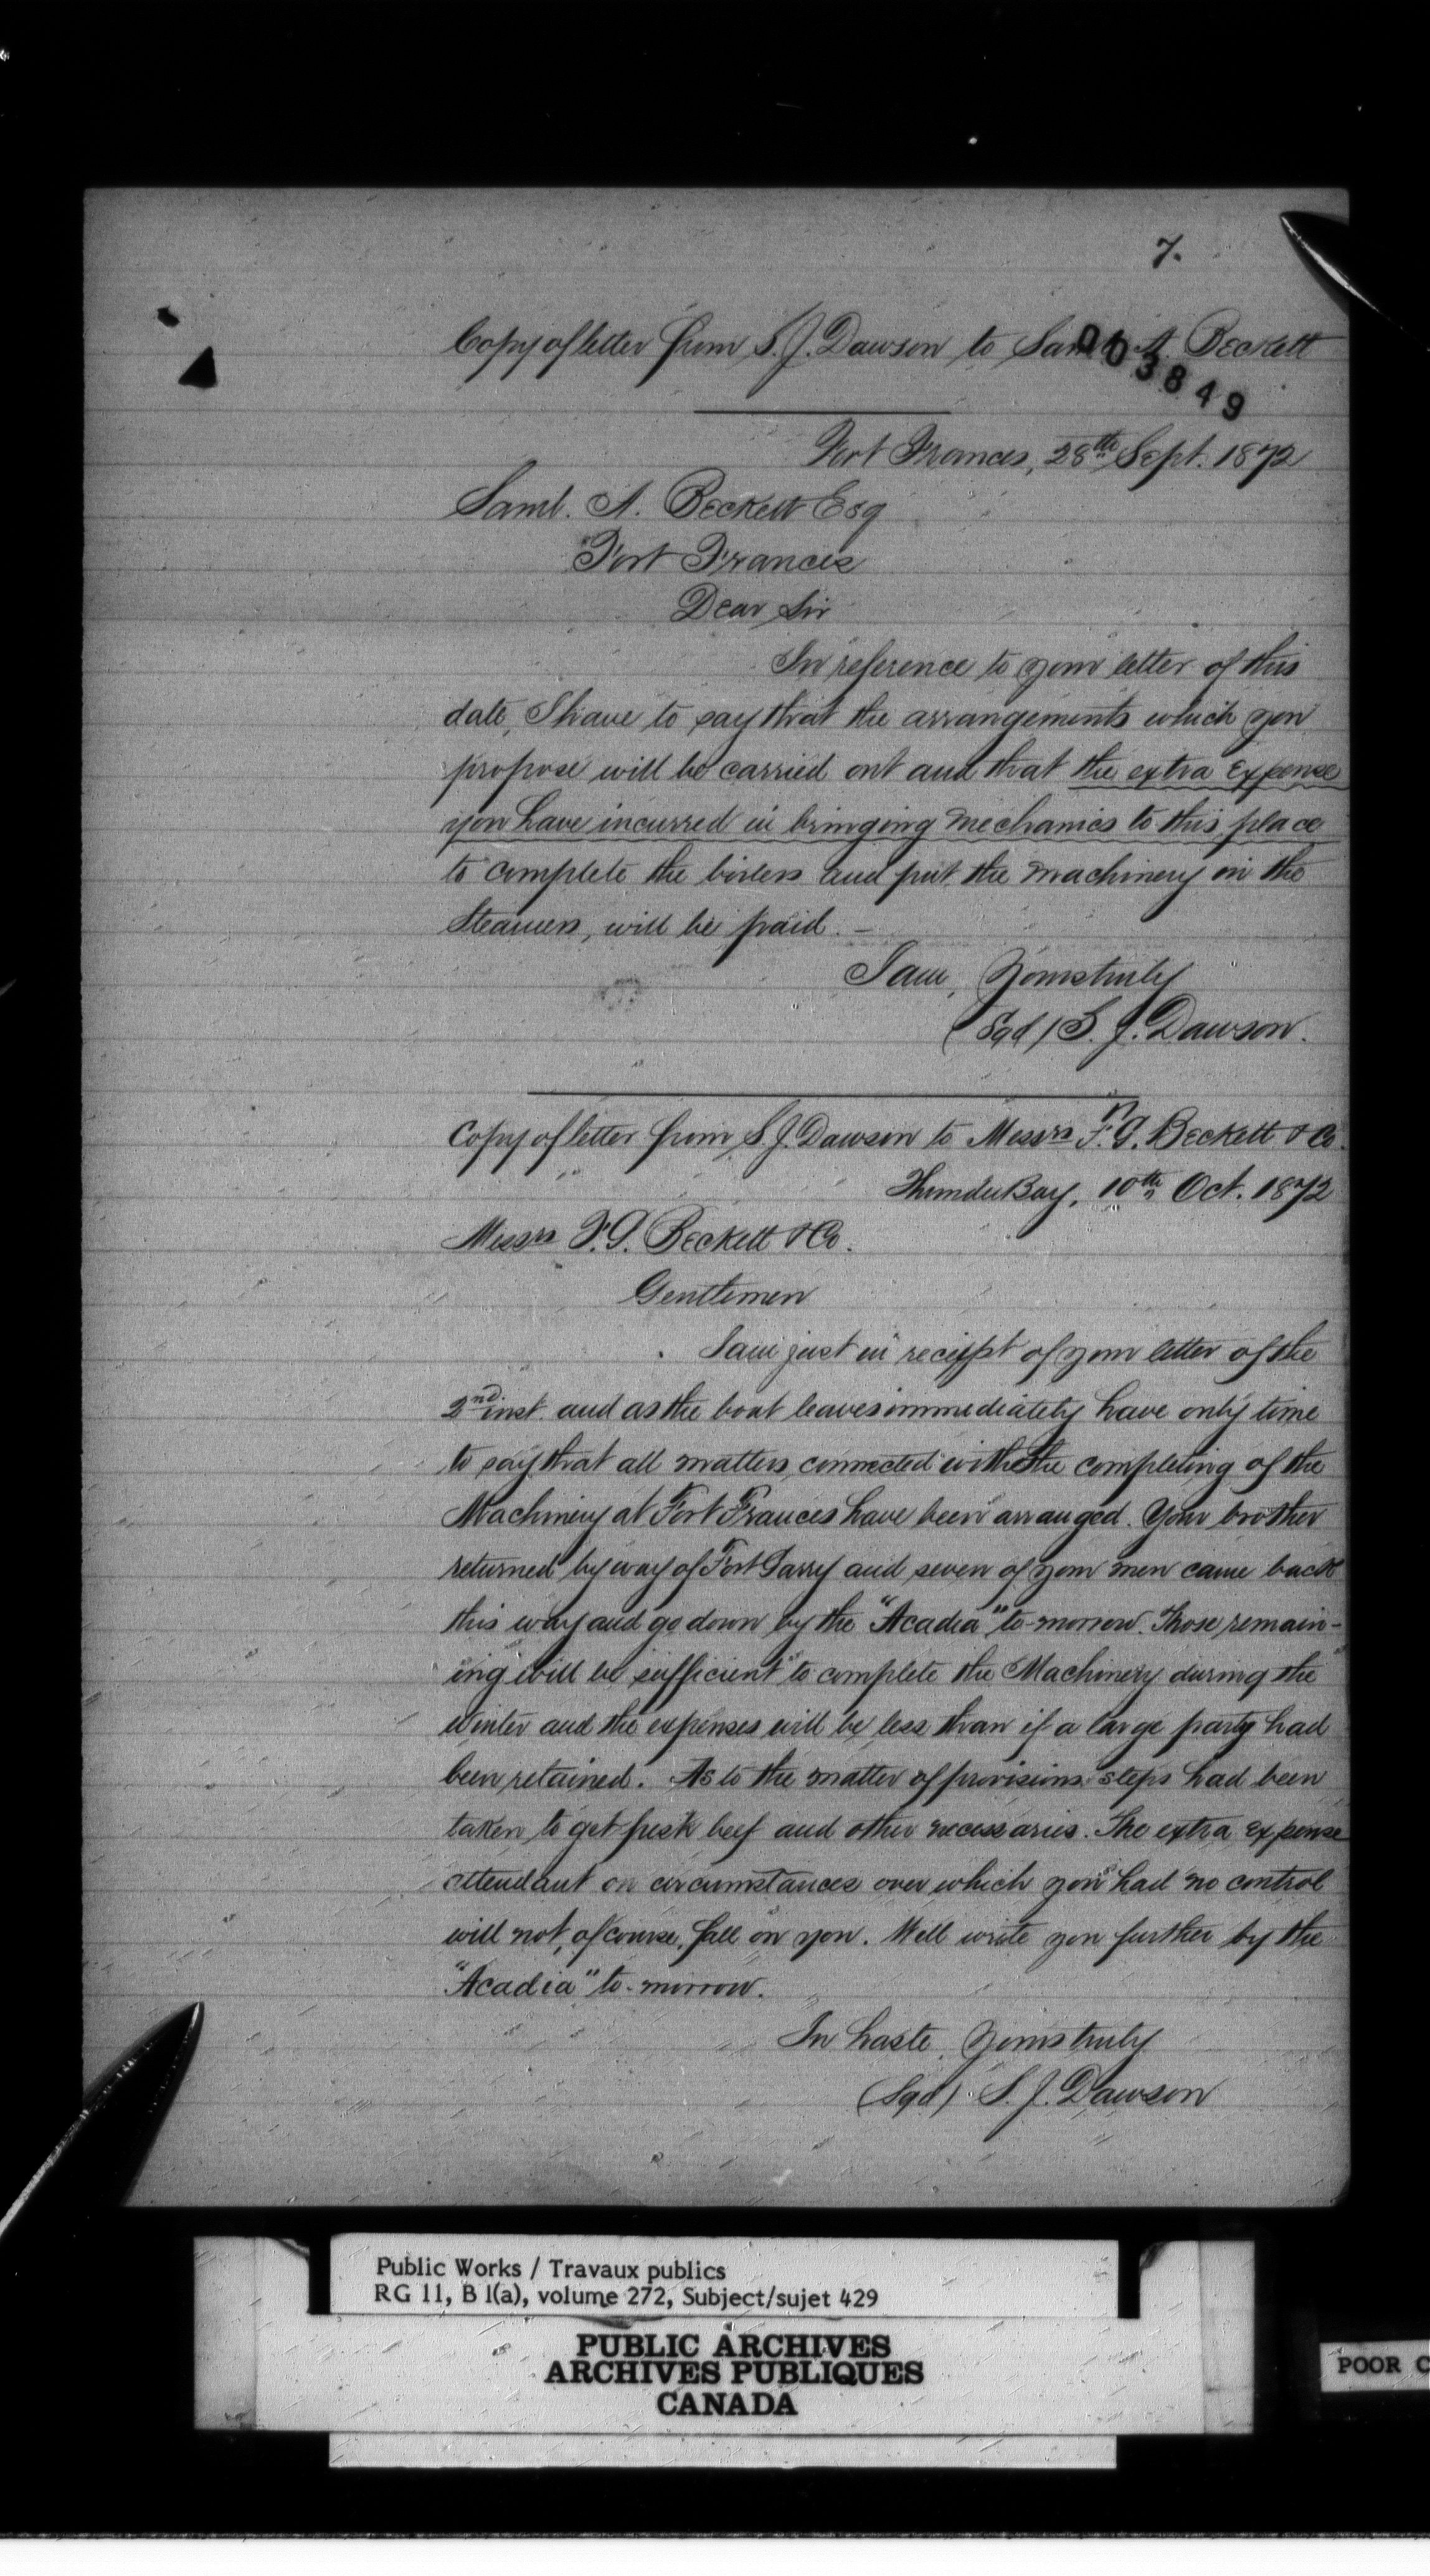 7.
Copy of letter from S. J. Dawson to Saml. A. Beckett
003849
Fort Frances, 28th Sept. 1872
Saml. A. Beckett Esq
Fort Frances
Dear Sir
In reference to your letter of this
date, I have to say that the arrangements which you
propose will be carried out and that the extra expense
you have incurred in bringing mechanics to this place
to complete the boilers and put the machinery in the
Steamers, will be paid. —
I am, Yours truly
(Sgd) S. J. Dawson.
Copy of letter from S. J. Dawson to Messrs F. G. Beckett & Co.
Thunder Bay, 10th Oct. 1872
Messrs F. G. Beckett & Co.
Gentlemen
I am just in receipt of your letter of the
2nd. inst. and as the boat leaves immediately have only time
to say that all matters connected with the completing of the
Machinery at Fort Frances have been arranged. Your brother
returned by way of Fort Garry and seven of your men came back
this way and go down by the "Acadia" to-morrow. Those remain-
ing will be sufficient to complete the Machinery during the
Winter and the expenses will be less than if a large party had
been retained. As to the matter of provisions steps had been
taken to get fresh beef and other necessaries. The extra expense
attendant on circumstances over which you had no control
will not, of course, fall on you. Will write you further by the
"Acadia" to-morrow.
In haste, Yours truly
(Sgd) S. J. Dawson
Public Works / Travaux publics
RG 11, B 1(a), volume 272, Subject/sujet 429
PUBLIC ARCHIVES
ARCHIVES PUBLIQUES
CANADA
POOR C